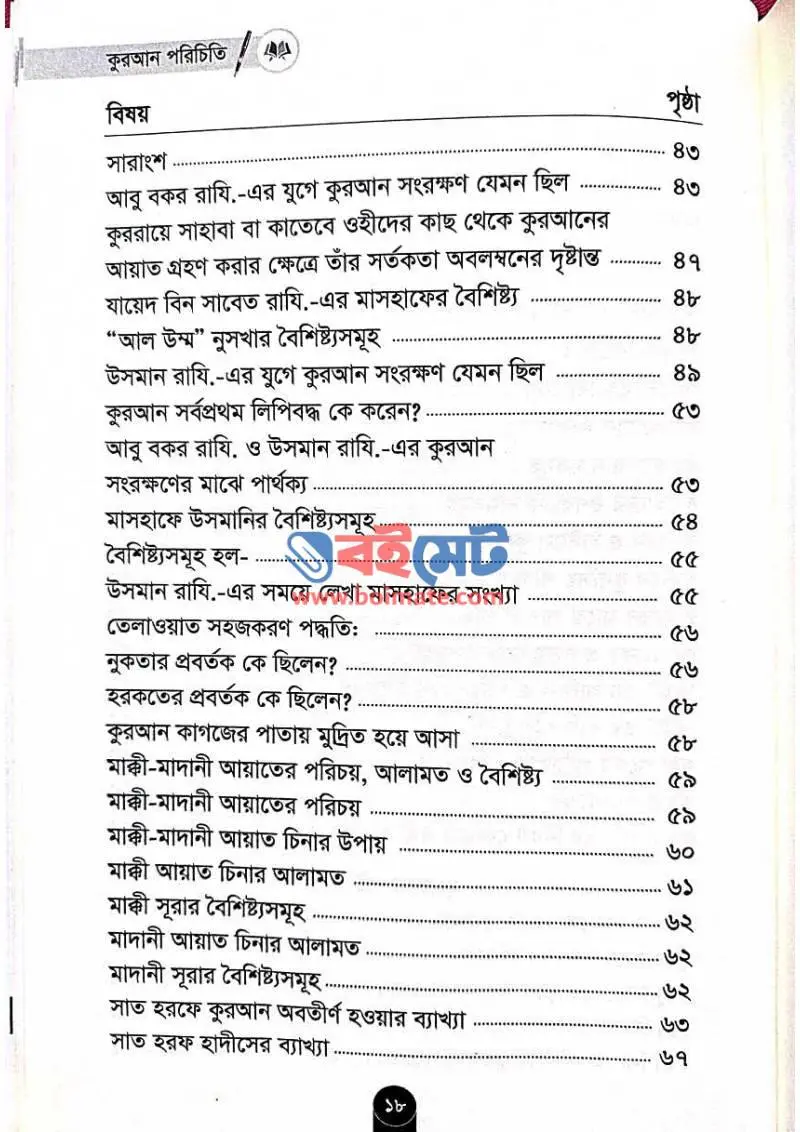 কুরআন পরিচিতি
বিষয় পৃষ্ঠা
সারাংশ ........ ৪৩
আবু বকর রাযি.-এর যুগে কুরআন সংরক্ষণ যেমন ছিল ........ ৪৩
কুররায়ে সাহাবা বা কাতেবে ওহীদের কাছ থেকে কুরআনের
আয়াত গ্রহণ করার ক্ষেত্রে তাঁর সর্তকতা অবলম্বনের দৃষ্টান্ত ........ ৪৭
যায়েদ বিন সাবেত রাযি.-এর মাসহাফের বৈশিষ্ট্য ........ ৪৮
“আল উম্ম” নুসখার বৈশিষ্ট্যসমূহ ........ ৪৮
উসমান রাযি.-এর যুগে কুরআন সংরক্ষণ যেমন ছিল ........ ৪৯
কুরআন সর্বপ্রথম লিপিবদ্ধ কে করেন? ........ ৫৩
আবু বকর রাযি. ও উসমান রাযি.-এর কুরআন
সংরক্ষণের মাঝে পার্থক্য ........ ৫৩
মাসহাফে উসমানির বৈশিষ্ট্যসমূহ ........ ৫৪
বইমেট
বৈশিষ্ট্যসমূহ হল- ........ ৫৫
উসমান রাযি.-এর সময়ে লেখা মাসহাফের সংখ্যা ........ ৫৫
www.boimate.com
তেলাওয়াত সহজকরণ পদ্ধতি: ........ ৫৬
নুকতার প্রবর্তক কে ছিলেন? ........ ৫৬
হরকতের প্রবর্তক কে ছিলেন? ........ ৫৮
কুরআন কাগজের পাতায় মুদ্রিত হয়ে আসা ........ ৫৮
মাক্কী-মাদানী আয়াতের পরিচয়, আলামত ও বৈশিষ্ট্য ........ ৫৯
মাক্কী-মাদানী আয়াতের পরিচয় ........ ৫৯
মাক্কী-মাদানী আয়াত চিনার উপায় ........ ৬০
মাক্কী আয়াত চিনার আলামত ........ ৬১
মাক্কী সূরার বৈশিষ্ট্যসমূহ ........ ৬২
মাদানী আয়াত চিনার আলামত ........ ৬২
মাদানী সূরার বৈশিষ্ট্যসমূহ ........ ৬২
সাত হরফে কুরআন অবতীর্ণ হওয়ার ব্যাখ্যা ........ ৬৩
সাত হরফ হাদীসের ব্যাখ্যা ........ ৬৭
১৮